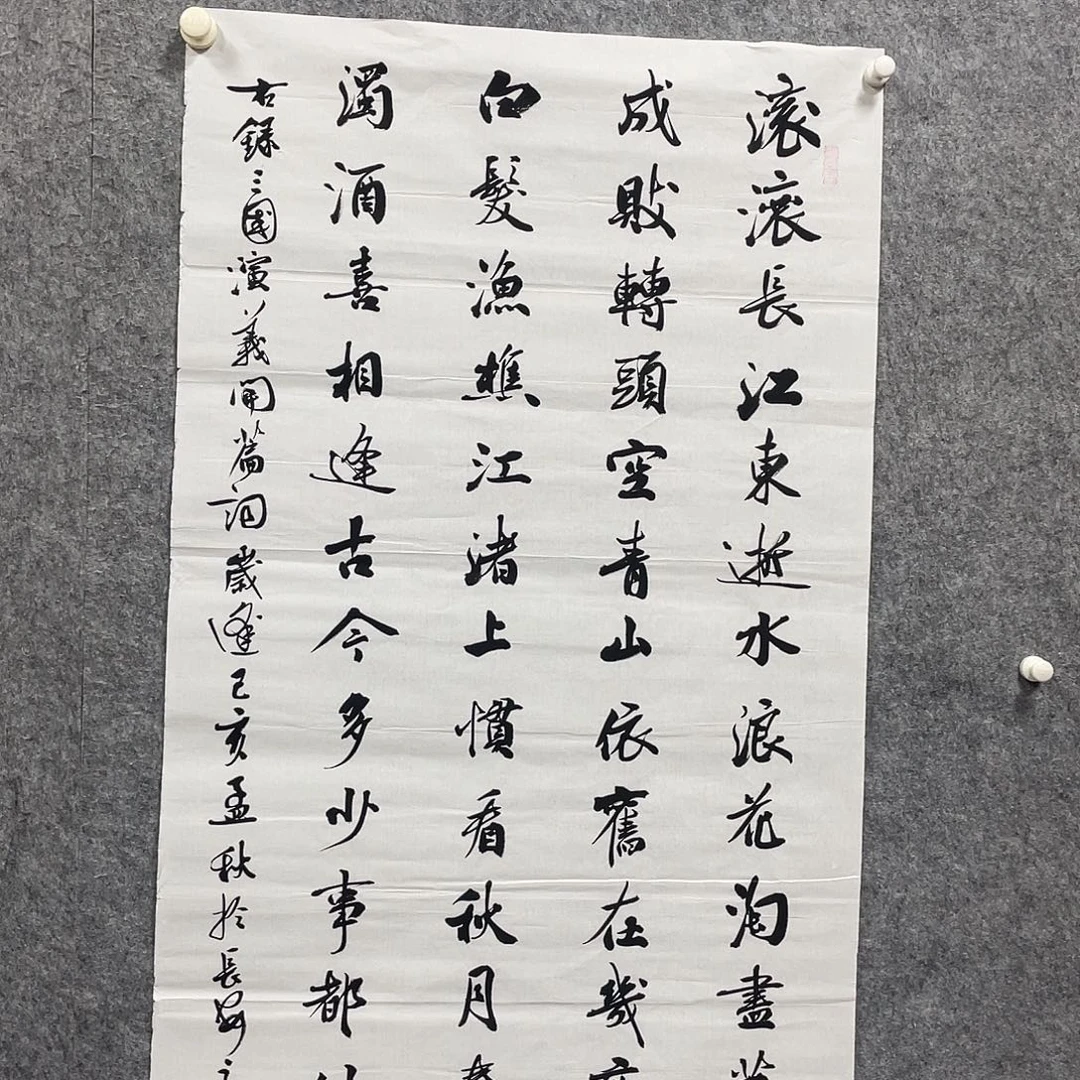 滚滚長江東逝水浪花淘盡英
成敗轉頭空青山依舊在幾度
白髮漁樵江渚上慣看秋月春
濁酒喜相逢古今多少事都付
右錄三國演義開篇詞歲逢己亥孟秋於長安